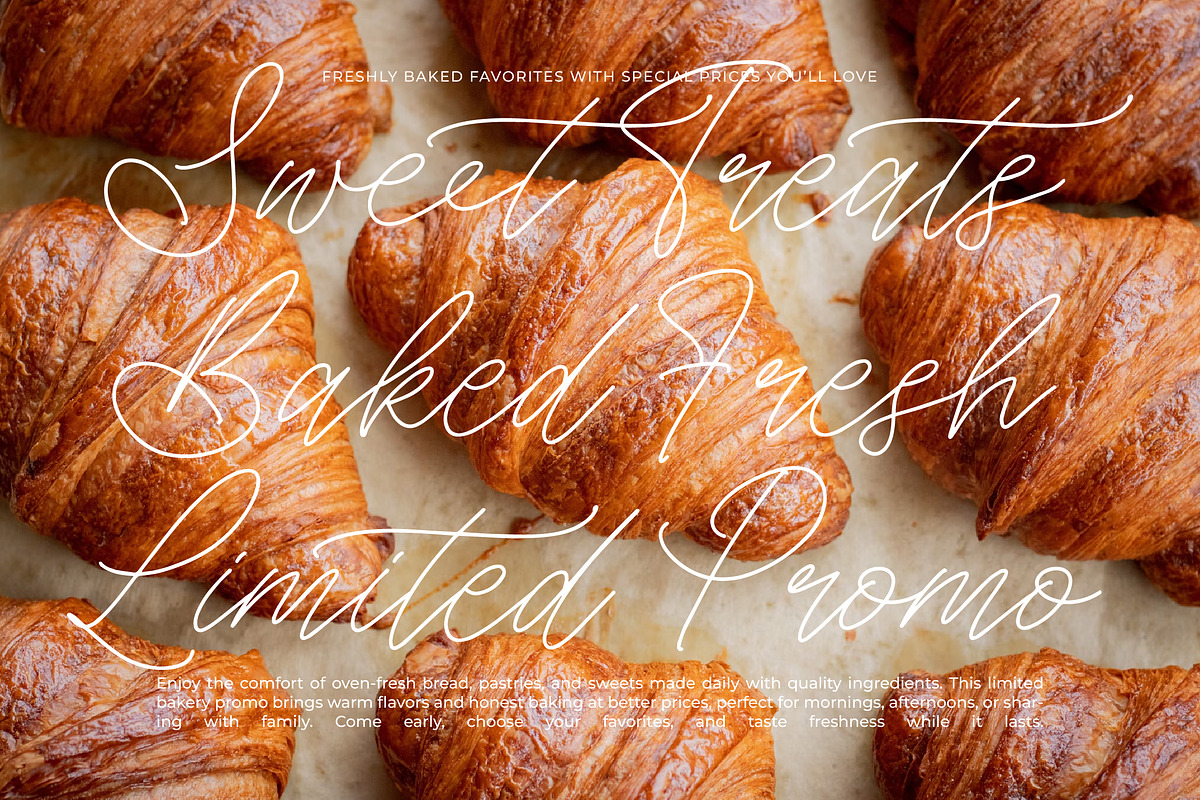 FRESHLY BAKED FAVORITES WITH SPECIAL PRICES YOU'LL LOVE
Sweet Treats
Baked Fresh
Limited Promo
Enjoy the comfort of oven-fresh bread, pastries, and sweets made daily with quality ingredients. This limited
bakery promo brings warm flavors and honest baking at better prices, perfect for mornings, afternoons, or shar-
ing with family. Come early, choose your favorites, and taste freshness while it lasts.